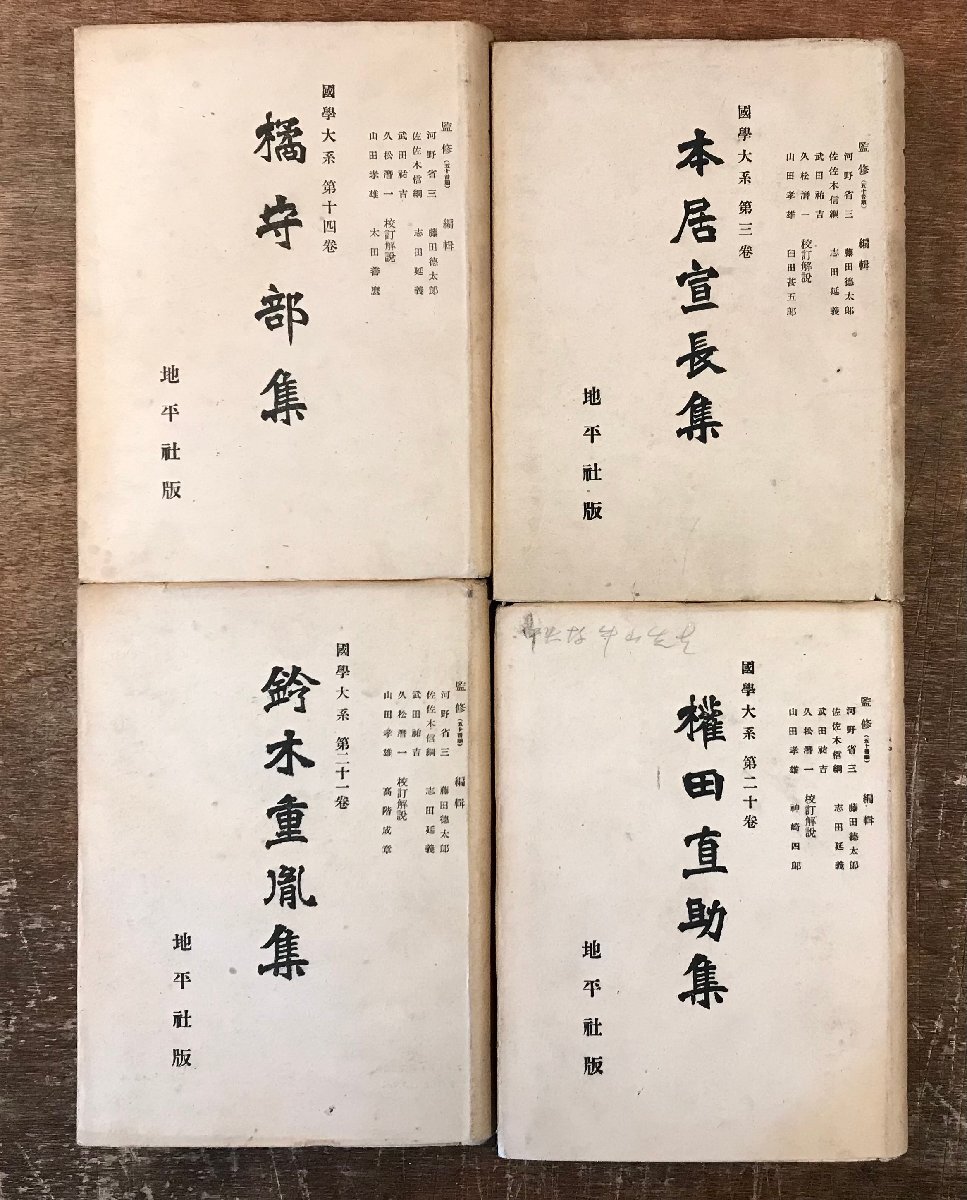 監修(五十音順)
河野省三
佐佐木信綱
武田祐吉
久松潛一
山田孝雄
編輯
藤田德太郎
志田延義
校訂解說
太田善麿
國學大系 第十四卷
橘守部集
地平社版
監修(五十音順)
河野省三
佐佐木信綱
武田祐吉
久松潛一
山田孝雄
編輯
藤田德太郎
志田延義
校訂解說
臼田甚五郎
國學大系 第三卷
本居宣長集
地平社版
監修(五十音順)
河野省三
佐佐木信綱
武田祐吉
久松潛一
山田孝雄
編輯
藤田德太郎
志田延義
校訂解說
高階成章
國學大系 第二十一卷
鈴木重胤集
地平社版
監修(五十音順)
河野省三
佐佐木信綱
武田祐吉
久松潛一
山田孝雄
編輯
藤田德太郎
志田延義
校訂解說
神崎四郎
國學大系 第二十卷
權田直助集
地平社版